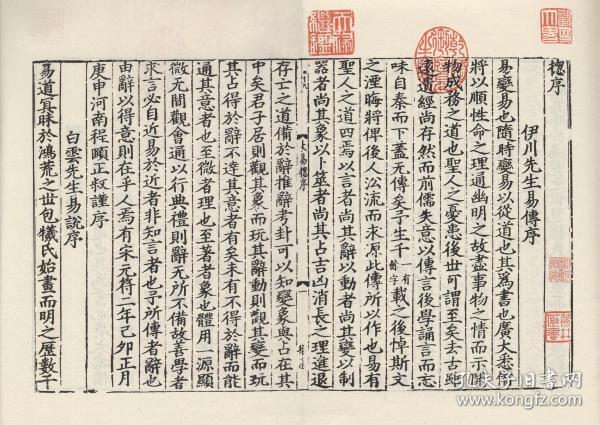 揔序
伊川先生易傳序
易變易也隨時變易以從道也其爲書也廣大悉備
將以順性命之理通幽明之故盡事物之情而示開
物成務之道也聖人之憂患後世可謂至矣去古雖
遠遺經尚存然而前儒失意以傳言後學誦言而忘
味自秦而下蓋无傳矣予生千有餘字載之後悼斯文
之湮晦將俾後人㳂流而求源此傳所以作也易有
聖人之道四焉以言者尚其辭以動者尚其變以制
器者尚其象以卜筮者尚其占吉凶消長之理進退
大易揔序
存亡之道備於辭推辭考卦可以知變象與占在其
中矣君子居則觀其象而玩其辭動則觀其變而玩
其占得於辭不達其意者有矣未有不得於辭而能
通其意者也至微者理也至著者象也體用一源顯
微无間觀會通以行典禮則辭无所不備故善學者
求言必自近易於近者非知言者也予所傳者辭也
由辭以得意則在乎人焉有宋元符二年己卯正月
庚申河南程頤正叔謹序
白雲先生易說序
易道冥昧於鴻荒之世包犧氏始畫而明之歷數千
孔夫子旧书网
www.kongfz.com